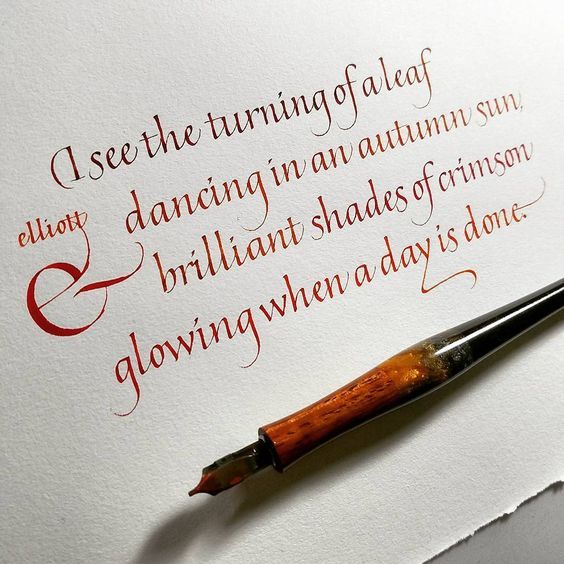 I see the turning of a leaf
dancing in an autumn sun,
brilliant shades of crimson
glowing when a day is done.
elliott
&